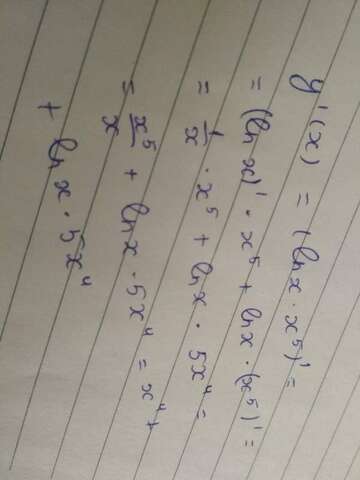 y'(x) = (ln x · x⁵)' =
= (ln x)' · x⁵ + ln x · (x⁵)' =
= 1/x · x⁵ + ln x · 5x⁴ =
= x⁵/x + ln x · 5x⁴ = x⁴ +
+ ln x · 5x⁴